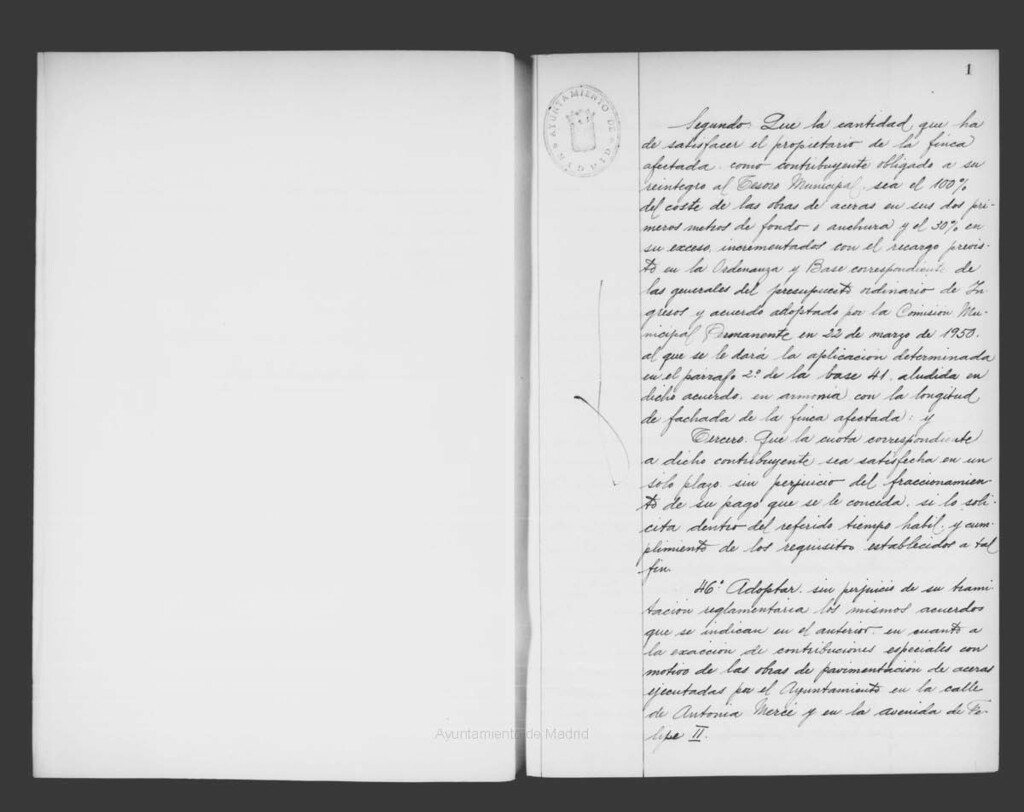 1
AYUNTAMIENTO DE MADRID
Segundo. Que la cantidad que ha
de satisfacer el propietario de la finca
afectada como contribuyente obligado a su
reintegro al Tesoro Municipal, sea el 100%
del coste de las obras de aceras en sus dos pri-
meros metros de fondo o anchura y el 30% en
su exceso, incrementados con el recargo previs-
to en la Ordenanza y Base correspondiente de
las generales del presupuesto ordinario de In
gresos y acuerdo adoptado por la Comisión Mu-
nicipal Permanente en 22 de marzo de 1950.
al que se le dará la aplicación determinada
en el párrafo 2º de la base 41, aludida en
dicho acuerdo, en armonía con la longitud
de fachada de la finca afectada; y
Tercero. Que la cuota correspondiente
a dicho contribuyente sea satisfecha en un
solo plazo, sin perjuicio del fraccionamien
to de su pago que se le conceda, si lo soli-
cita dentro del referido tiempo habil, y cum-
plimiento de los requisitos establecidos a tal
fin.
46º Adoptar, sin perjuicio de su trami
tación reglamentaria los mismos acuerdos
que se indican en el anterior, en cuanto a
la exacción de contribuciones especiales con
motivo de las obras de pavimentación de aceras
ejecutadas por el Ayuntamiento en la calle
de Antonia Mercé y en la avenida de Fe-
lipe II.
Ayuntamiento de Madrid